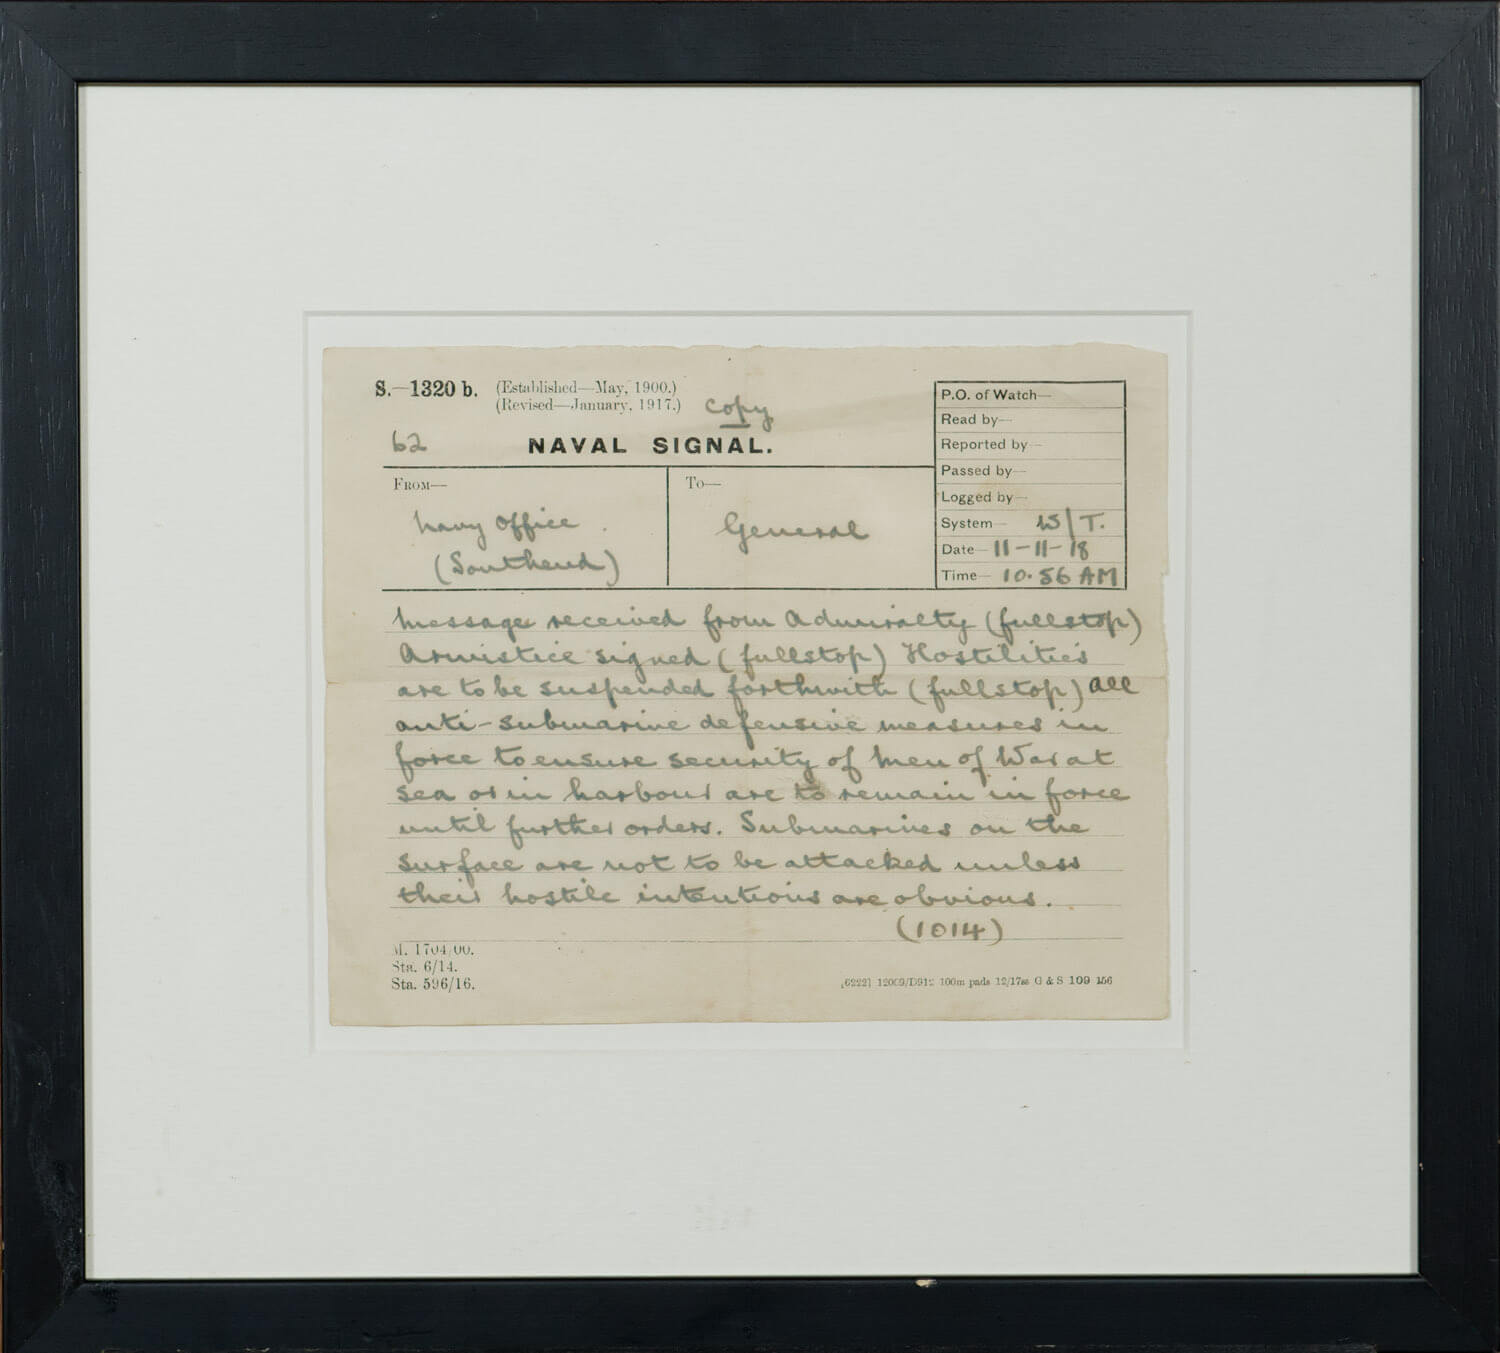 S.—1320 b. (Established—May, 1900.)
(Revised—January, 1917.)
Copy
62
NAVAL SIGNAL.
P.O. of Watch—
Read by—
Reported by—
Passed by—
Logged by—
System— W/T.
Date— 11-11-18
Time— 10.56 AM
FROM—
Navy Office
(Southend)
To—
General
Message received from Admiralty (fullstop)
Armistice signed (fullstop) Hostilities
are to be suspended forthwith (fullstop) All
anti-submarine defensive measures in
force to ensure security of Men of War at
sea or in harbour are to remain in force
until further orders. Submarines on the
surface are not to be attacked unless
their hostile intentions are obvious.
(1014)
M. 1704/00.
Sta. 6/14.
Sta. 596/16.
[6222] 12009/D912 100m pads 12/17ss G & S 109 156